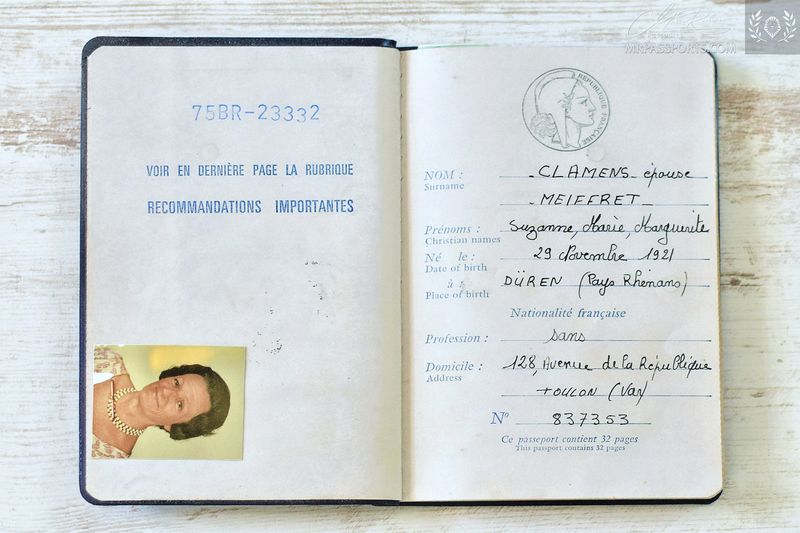 MRPASSPORTS.COM
75BR-23332
VOIR EN DERNIÈRE PAGE LA RUBRIQUE
RECOMMANDATIONS IMPORTANTES
RÉPUBLIQUE FRANÇAISE
NOM : - CLAMENS - épouse
Surname - MEIFFRET -
Prénoms : Suzanne, Marie, Marguerite
Christian names
Né le : 29 Novembre 1921
Date of birth
à : DÜREN (Pays Rhénans)
Place of birth
Nationalité française
Profession : sans
Domicile : 128, Avenue de la République
Address
TOULON (Var)
N° 837353
Ce passeport contient 32 pages
This passport contains 32 pages